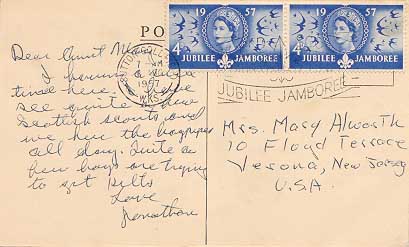 PO
Dear Aunt
I having a
time here. I have
see quite a few
Scottish scouts and
we hear the bagpiper
all day. Quite a
few boys are trying
to get kilts
Love
Jonathan
SUTTON COLDFIELD
1957
WKS.
19 57
4D
JUBILEE JAMBOREE
19 57
4D
JUBILEE JAMBOREE
JUBILEE JAMBOREE
Mrs. Mary Alworth
10 Floyd Terrace
Verona, New Jersey
U.S.A.